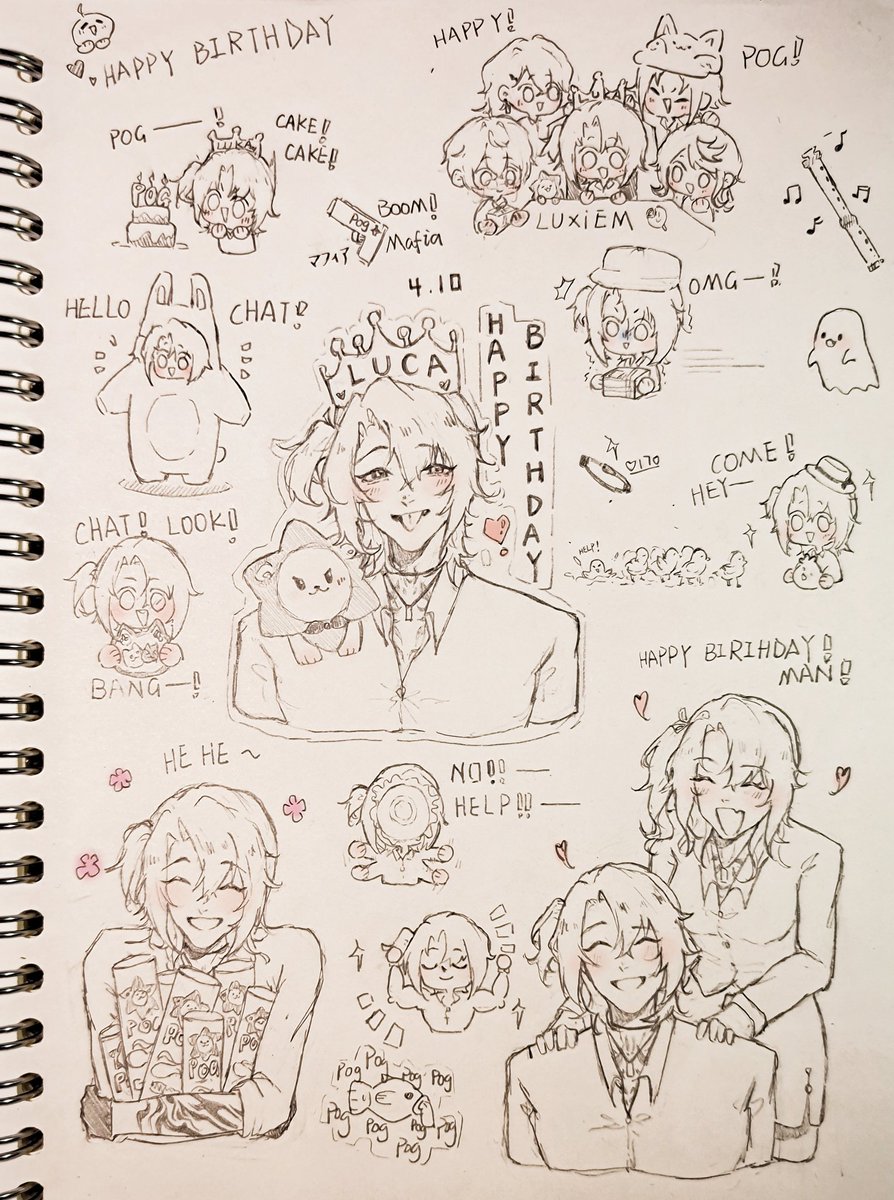 HAPPY BIRTHDAY
HAPPY!
POG!
POG—!
CAKE!
CAKE!!
LUKA
POG
LUKA
LUXIEM
BOOM!
Pog
Mafia
マフィア
4.10
HELLO
CHAT!
LUCA
HAPPY
BIRTHDAY
OMG—!
♡170
COME!
HEY—
HELP!
CHAT! LOOK!
BANG—!
HAPPY BIRIHDAY!
MAN!
HE HE ~
NO!!—
HELP!!—
POG
POG
POG
POG
Pog
Pog
Pog
Pog
Pog
Pog
Pog
Pog
Pog